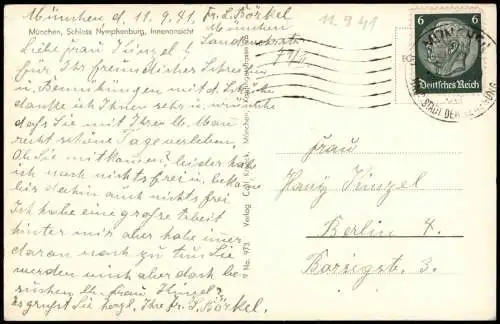 München d. 11.9.41. Fr. L. Börkel
München
Landwehrstr.
77/4
11.9.41
München, Schloss Nymphenburg, Innenansicht
Liebe Frau Hinzel!
für Ihr freundliches Schreiben
und Bemühungen mit d.
danke ich Ihnen sehr u. wünsche
daß Sie mit Ihrem lb. Mann
recht schöne Tage verleben,
Ob Sie mitkommen? leider habe
ich noch nichts frei u. bekomme
bis dahin auch nichts frei
Ich habe eine große Arbeit
hinter mir aber habe immer
daran noch zu tun Sie
werden uns aber doch be-
suchen lb. Frau Hinzel?
Es grüßt Sie herzl. Ihre Fr. L. Börkel.
9 No. 973 Verlag Carl München
6 6
Deutsches Reich
MÜNCHEN
HAUPTSTADT DER BEWEGUNG
Frau
Hinzel
Berlin 4.
Borsigstr. 3.